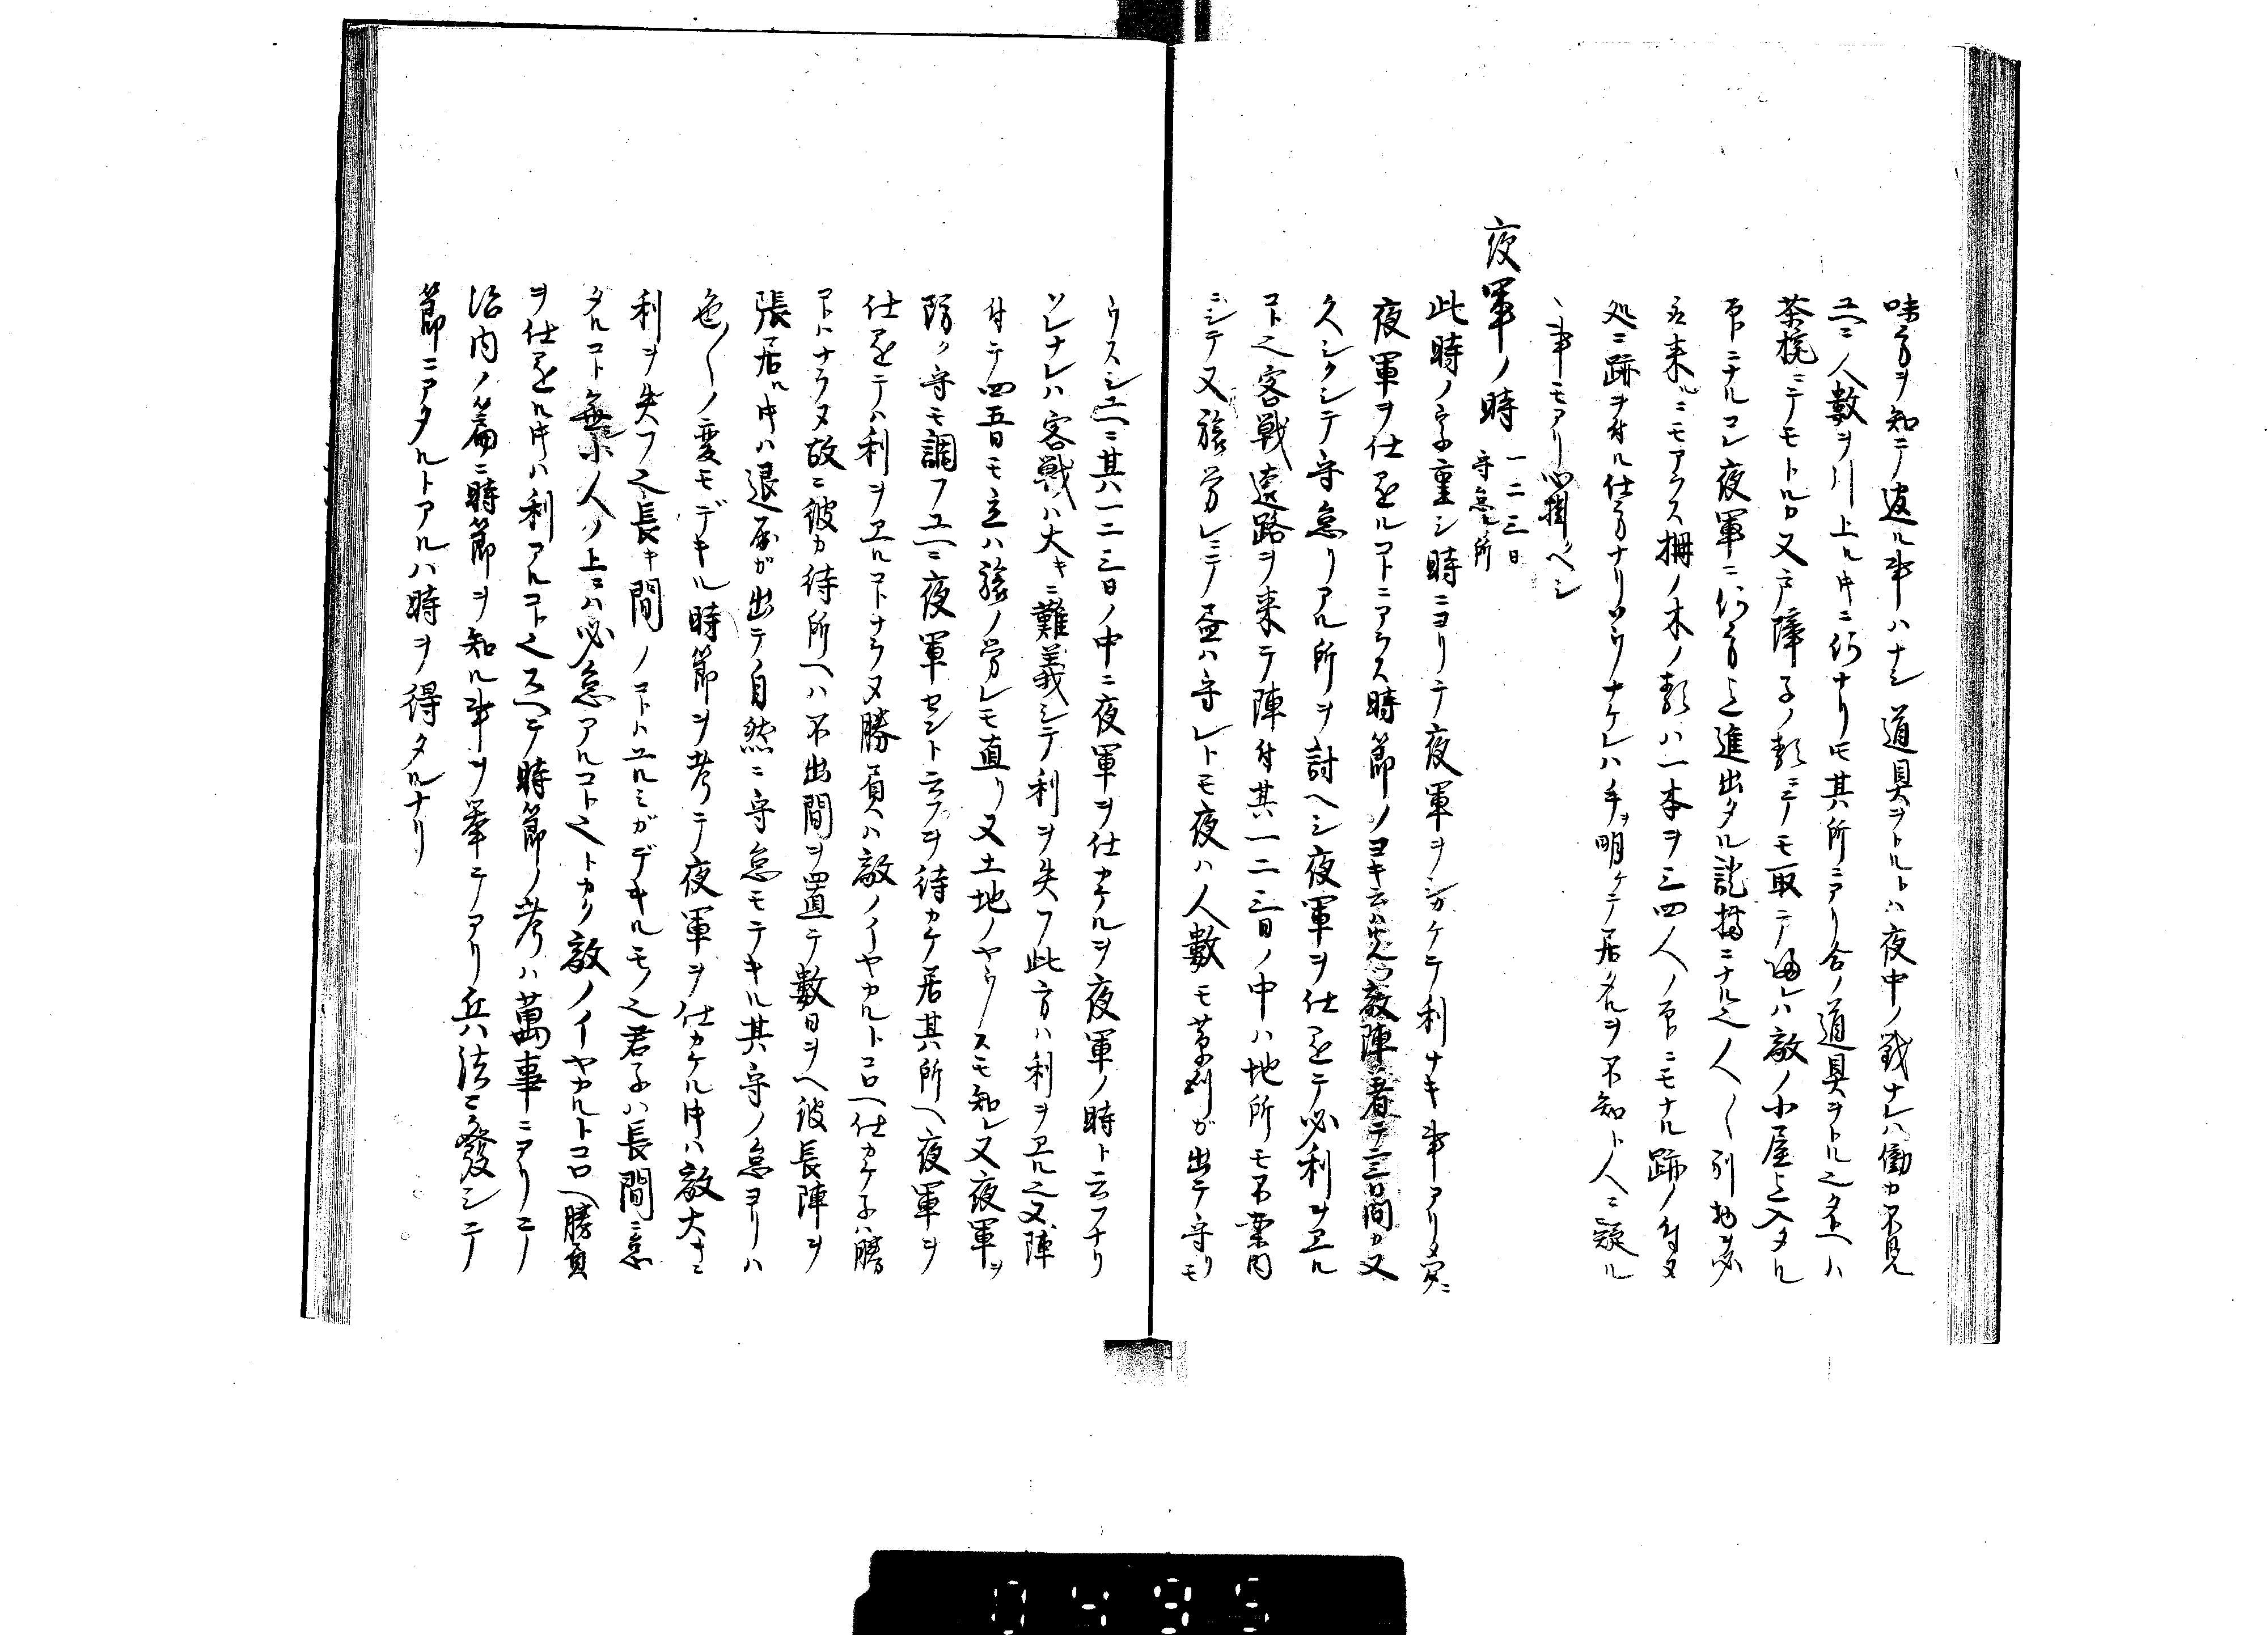 味方ヲ知ニテ返ル事ハナシ道具ヲトルトハ夜中ノ戦ナレハ働カ不見
ユヘニ人数ヲ引上ルキニ何ナリモ其所ニアリ合ノ道具ヲトル之タトヘハ
茶椀ニテモトルカ又戸障子ノ類ニテモ取ニテ帰レハ敵ノ小屋迄入タル
ニナルコレ夜軍ニ何方迄進出タル証拠ニナル之人〱引物必
来ルニモアラス柵ノ木ノ類ハ一本ヲ三四人ノニモナル跡ノ付タ
処ニ跡ヲ付ル仕方ナリナケレハ手ヲ明ケテ居タルヲ不知ト人ニ疑ル
ヽ事モアリ心掛ヘシ
夜軍ノ時 一二三日 守怠ル所
此時ノ字重シ時ニヨリテ夜軍ヲシカケテ利ナキ事アリタニ
夜軍ヲ仕ルコトニアラス時節ノヨキ云ハ敵陣着テ二三日間カ又
久シクシテ守怠リアル所ヲ討ヘシ夜軍ヲ仕テ必利ヲヱル
コト之客戦遠路ヲ来テ陣付其一二三日ノ中ハ地所モ不案内
ニシテ又旅労レニテ昼ハ守レトモ夜ハ人数モ草刈ガ出テ守リモ
ウスシユヘニ其一二三日ノ中ニ夜軍ヲ仕カケルヲ夜軍ノ時ト云フナリ
ソレナレハ客戦ハ大キニ難義シテ利ヲ失フ此方ハ利ヲヱル之又陣
付テ四五日モ立ハ旅ノ労レモ直リ又土地ノヤウスモ知レ又夜軍ヲ
防ク守モ調フユヘニ夜軍セント云フヲ待カケ居其所ヘ夜軍ヲ
仕テハ利ヲヱルコトナラヌ勝負ハ敵ノイヤカルトコロヘ仕カケ子ハ勝
コトハナラヌ故ニ彼カ待所ヘハ不出間ヲ置テ数日ヲヘ彼長陣ヲ
張居ルキハ退屈ガ出テ自然ニ守怠モテキル其守ノ怠ヨリハ
色〱ノ変モデキル時節ヲ考テ夜軍ヲ仕カケルキハ敵大キニ
利ヲ失フ之長キ間ノコトハユルミガデキルモノ之君子ハ長間ニ怠
タルコト無小人ノ上ニハ必怠アルコト之トカク敵ノイヤカルトコロヘ勝負
ヲ仕ルキハ利アルコト之スヘテ時節ノ考ハ萬事ニアリニテ
治内ノ篇ニ時節ヲ知ル事ヲ挙テアリ兵ハ法ニ発シテ
節ニアタルトアルハ時ヲ得タルナリ